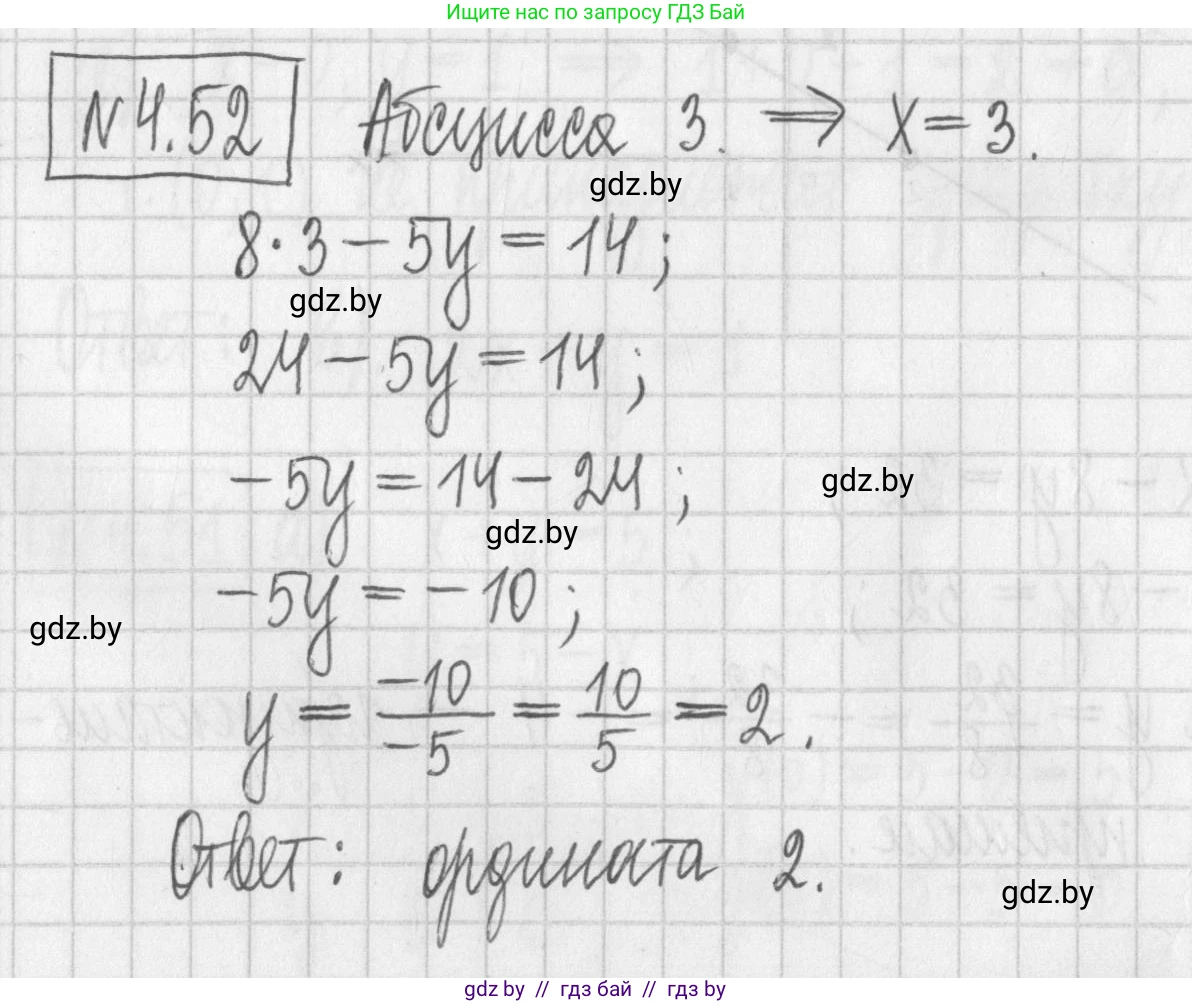 Ищите нас по запросу ГДЗ Бай
N 4.52 Абсцисса 3. ⇒ x = 3.
gdz.by
8·3 − 5y = 14;
gdz.by
24 − 5y = 14;
−5y = 14 − 24;
gdz.by
gdz.by
−5y = −10;
gdz.by
y = −10/−5 = 10/5 = 2.
Ответ: ордината 2.
gdz.by
gdz by // гдз бай // гдз by